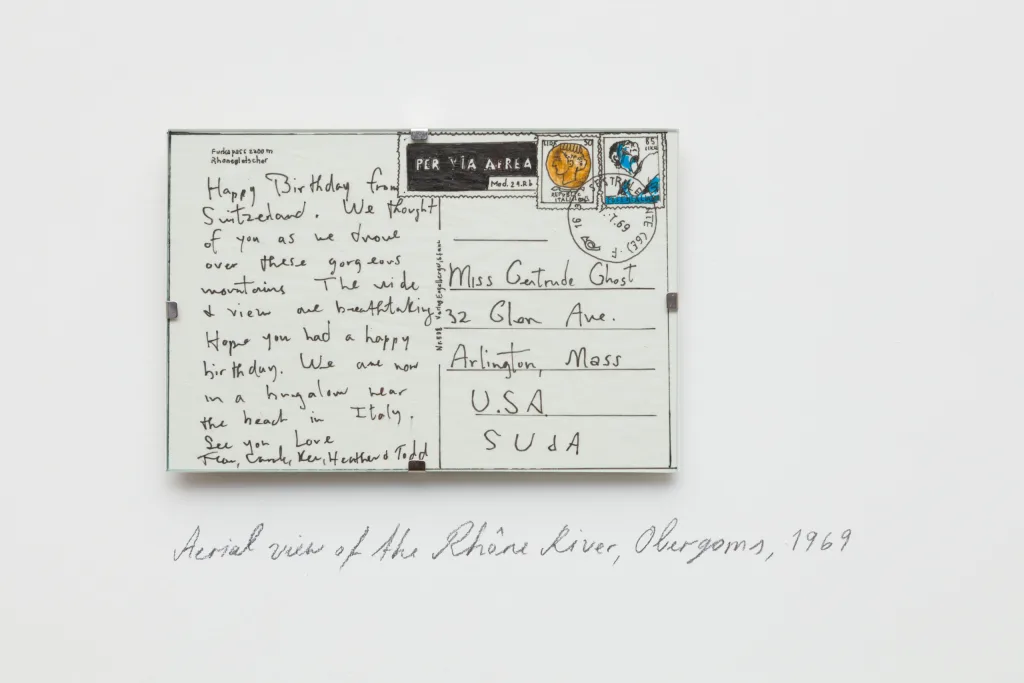 Furkapass 2200m
Rhonegletscher
Happy Birthday from
Switzerland. We thought
of you as we drove
over these gorgeous
mountains The ride
& view are breathtaking.
Hope you had a happy
birthday. We are now
in a bungalow near
the beach in Italy.
See you Love
Fran, Ken, Heather & Todd
PER VIA AEREA
Mod. 24.R.b
LIRE 50
REPUBBLICA
ITALIANA
85
LIRE
.69
Miss Gertrude Ghost
32 Glen Ave.
Arlington, Mass
U.S.A.
Aerial view of the Rhône River, Obergoms, 1969